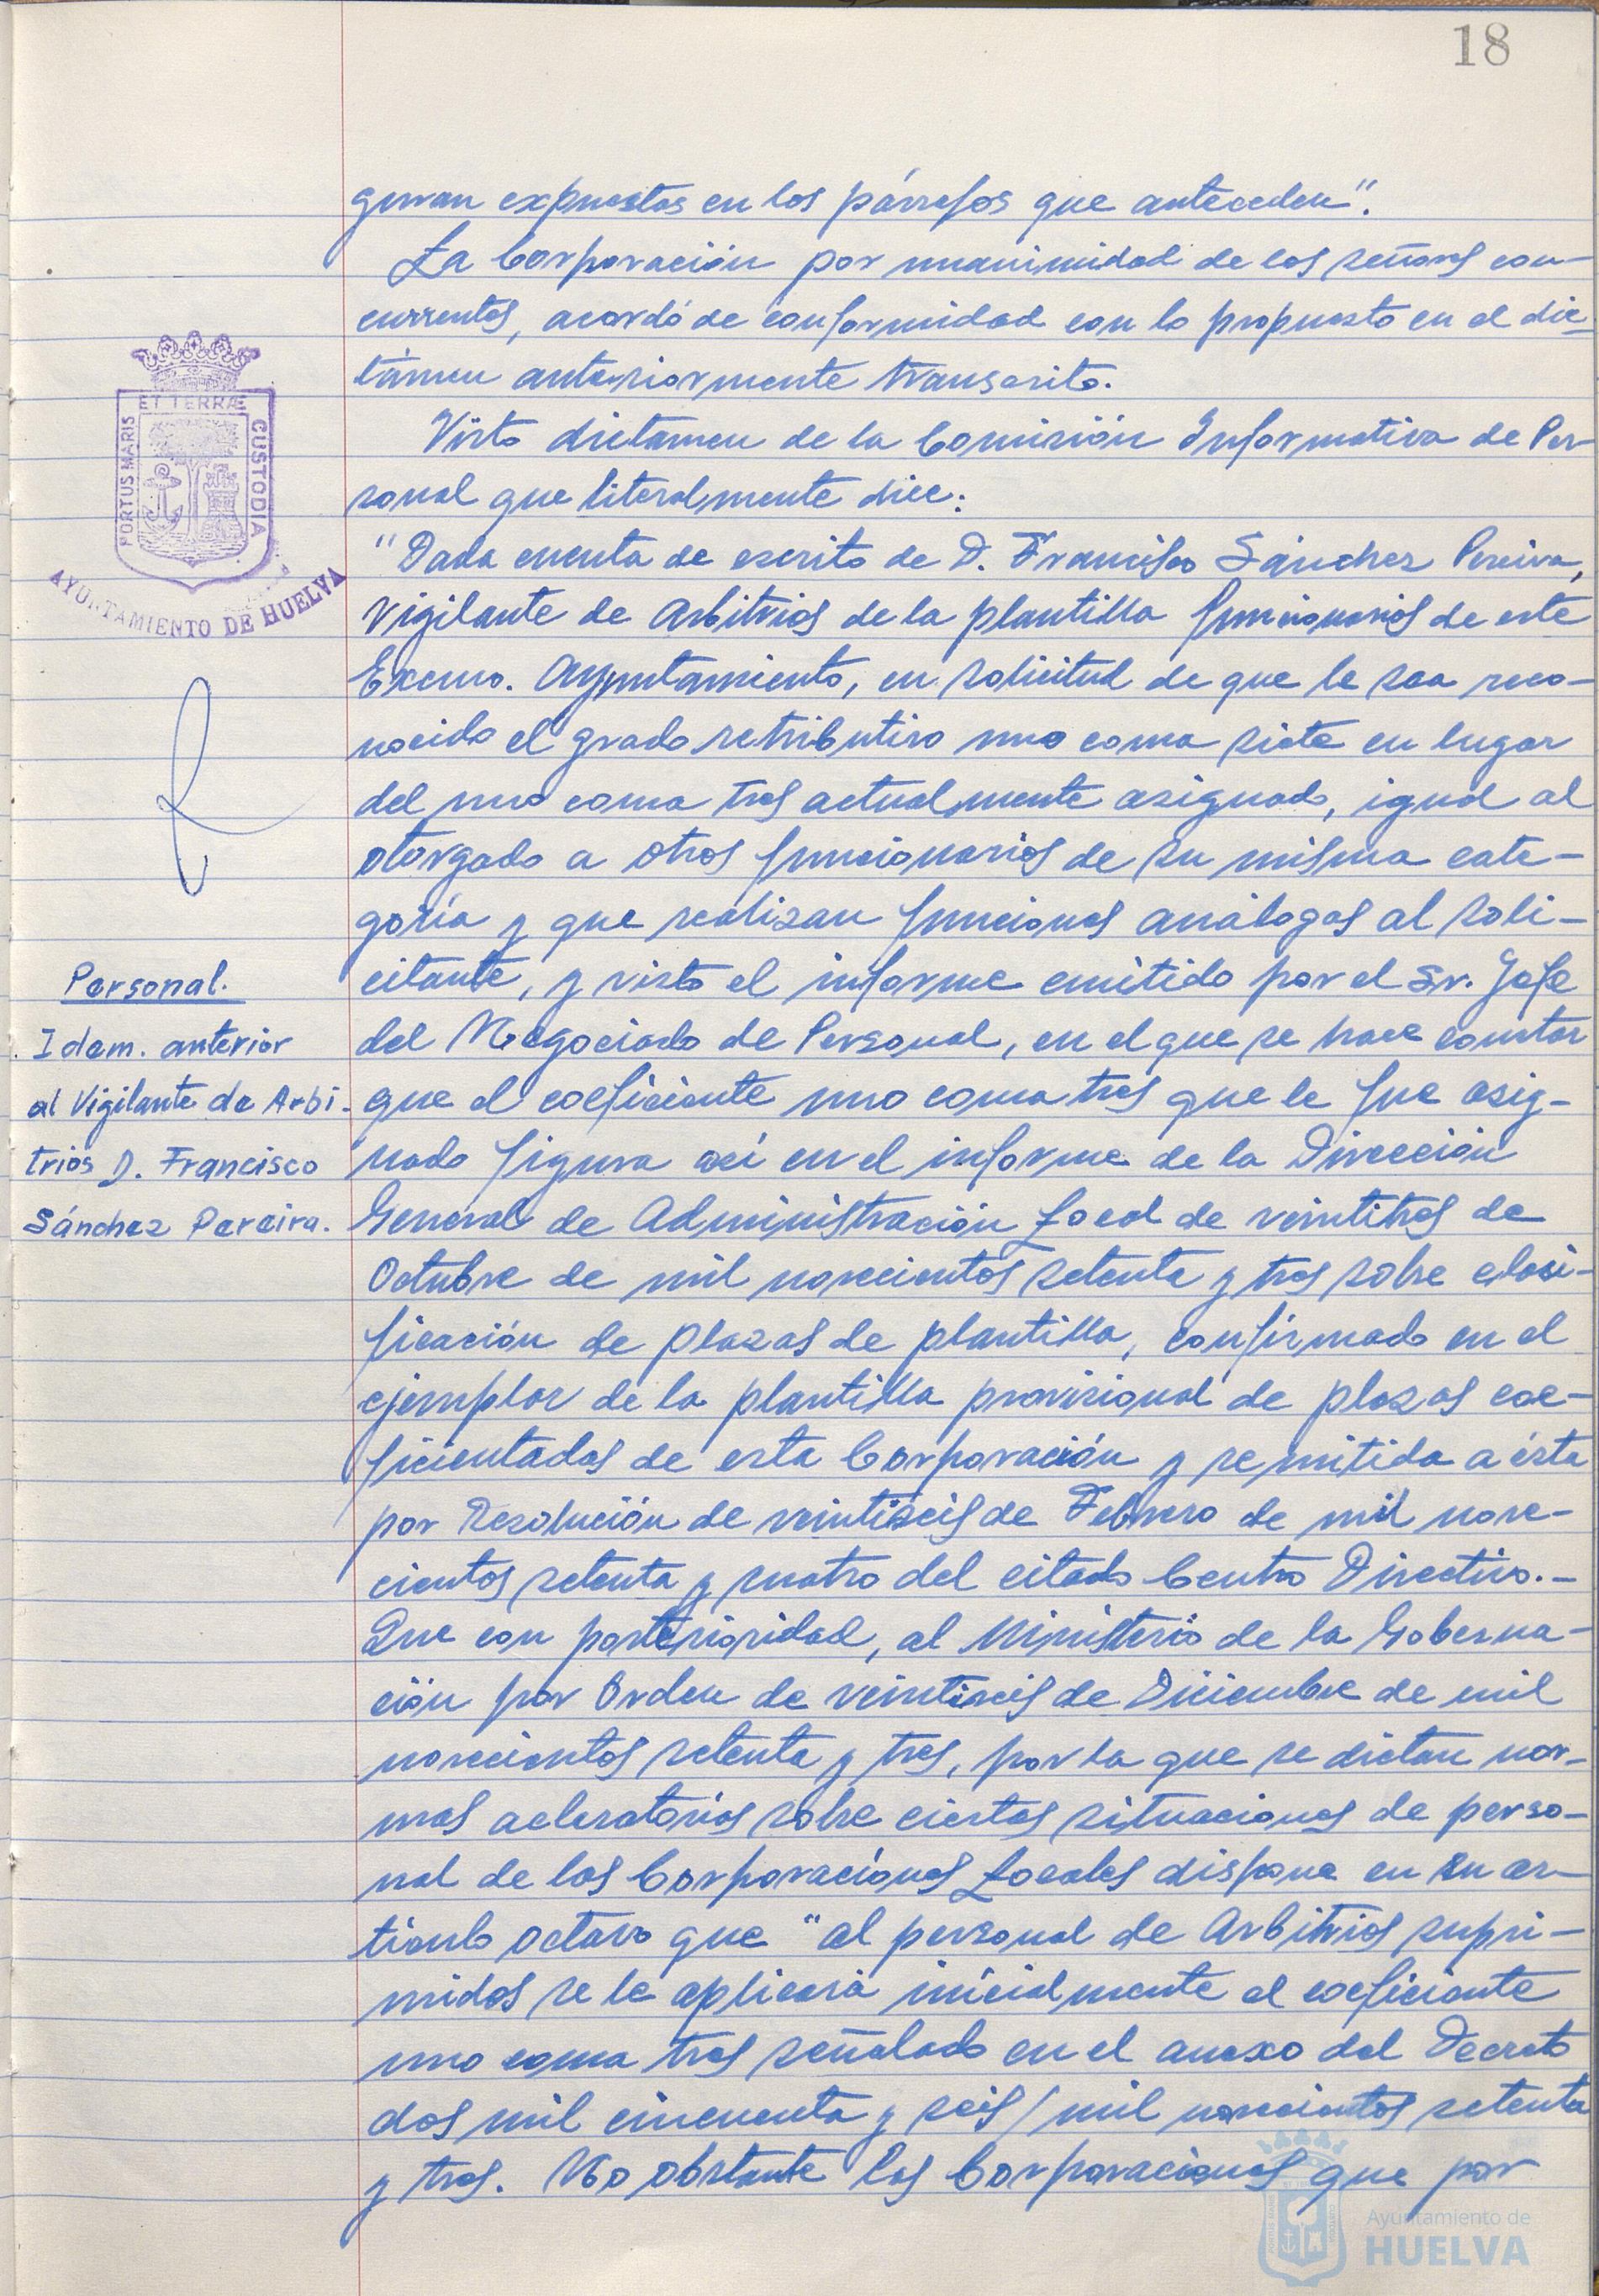 18
guran expuestas en los párrafos que anteceden".
La Corporación por unanimidad de los señores con-
currentes, acordó de conformidad con lo propuesto en el dic-
támen anteriormente transcrito.
Visto dictamen de la Comisión Informativa de Per-
sonal que literalmente dice:
"Dada cuenta de escrito de D. Francisco Sánchez Pereira,
Vigilante de Arbitrios de la plantilla funcionarios de este
Excmo. Ayuntamiento, en solicitud de que le sea reco-
nocido el grado retributivo uno coma siete en lugar
del uno coma tres actualmente asignado, igual al
otorgado a otros funcionarios de su misma cate-
goría y que realizan funciones análogas al soli-
citante, y visto el informe emitido por el Sr. Jefe
del Negociado de Personal, en el que se hace constar
que el coeficiente uno coma tres que le fue asig-
nado figura así en el informe de la Dirección
General de Administración Local de veintitres de
Octubre de mil novecientos setenta y tres sobre clasi-
ficación de plazas de plantilla, confirmado en el
ejemplar de la plantilla provisional de plazas coe-
ficientadas de esta Corporación y remitida a ésta
por Resolución de veintiseis de Febrero de mil nove-
cientos setenta y cuatro del citado Centro Directivo.-
Que con posterioridad, al Ministerio de la Goberna-
ción por Orden de veintiseis de Diciembre de mil
novecientos setenta y tres, por la que se dictan nor-
mas aclaratorias sobre ciertas situaciones de perso-
nal de las Corporaciones Locales dispone en su ar-
tículo octavo que "al personal de Arbitrios supri-
midos se le aplicará inicialmente el coeficiente
uno coma tres señalado en el anexo del Decreto
dos mil cincuenta y seis/mil novecientos setenta
y tres. No obstante las Corporaciones que por
PORTUS MARIS
ET TERRÆ
CUSTODIA
AYUNTAMIENTO DE HUELVA
Personal.
Idem. anterior
al Vigilante de Arbi-
trios D. Francisco
Sánchez Pereira.
Ayuntamiento de
HUELVA